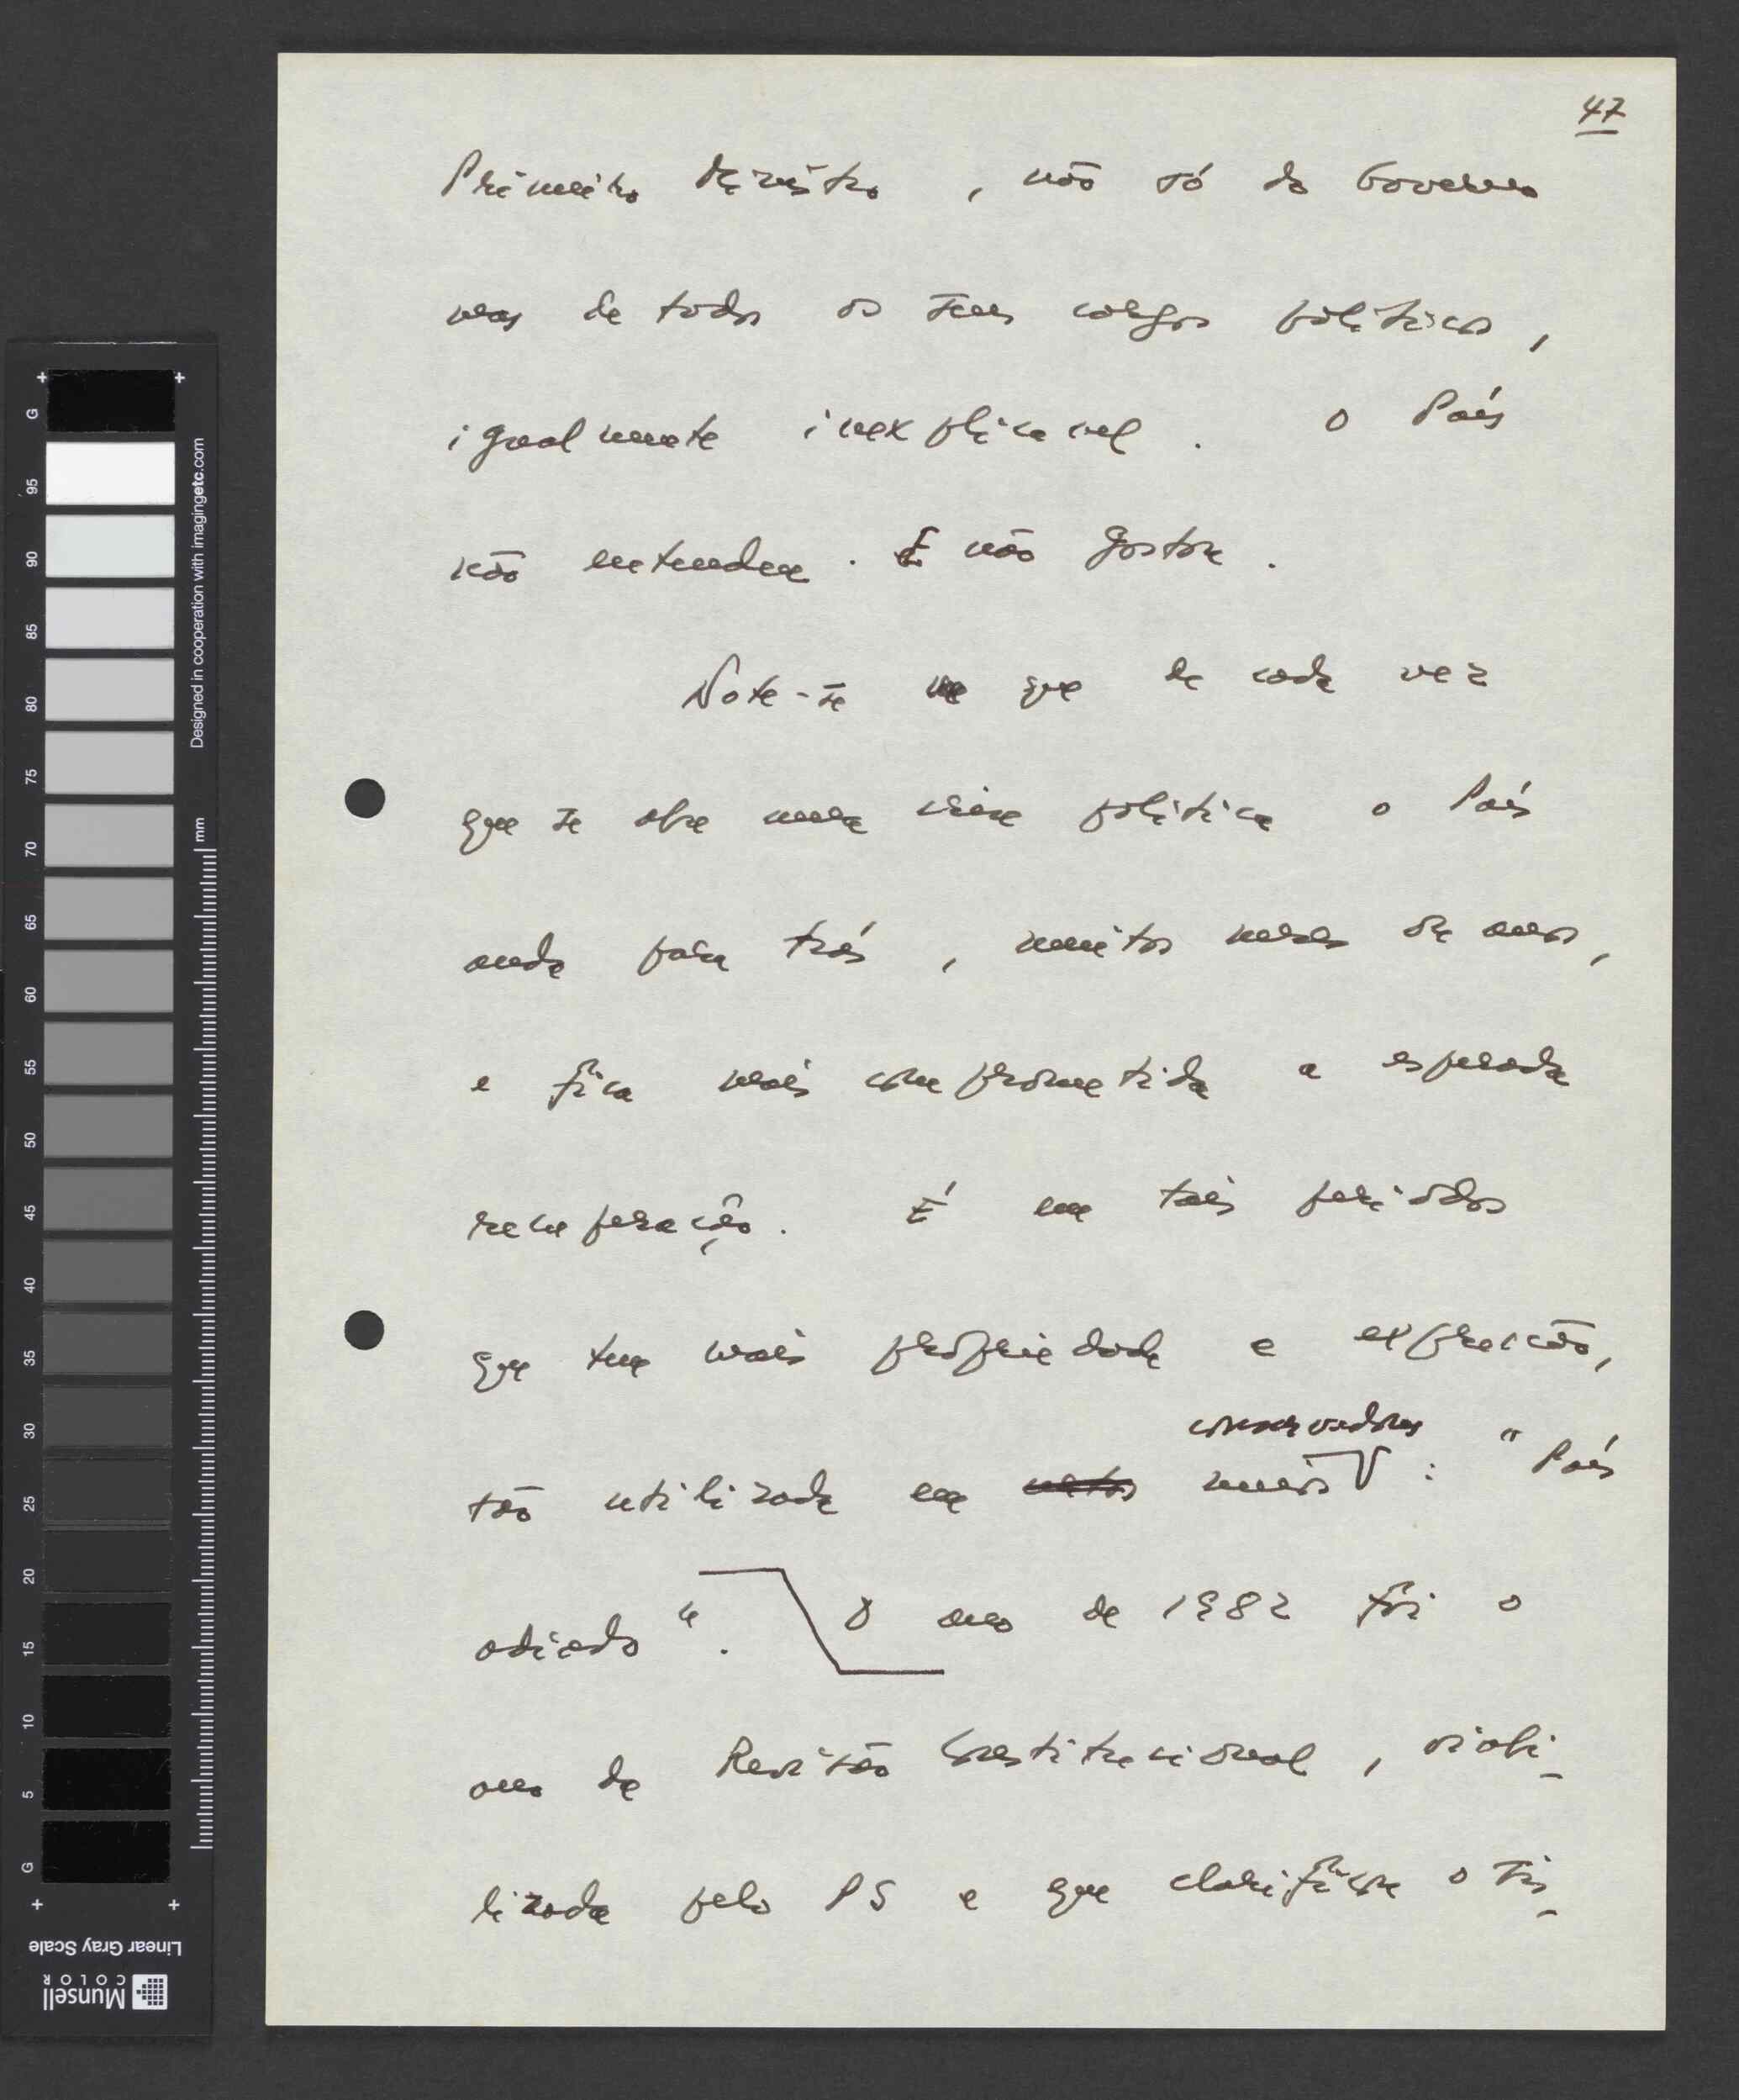 47
Primeiro Ministro, não só do Governo
mas de todos os seus cargos políticos,
igualmente inexplicavel. O País
não entendeu. E não gostou.
Note-se que de cada vez
que se abre uma crise politica o País
anda para trás, muitos meses ou anos,
e fica mais comprometida a esperada
recuperação. É em tais periodos
que tem mais propriedade a expressão,
conservadores
tão utilizada em meios : "País
adiado". O ano de 1982 foi o
ano da Revisão Constitucional, viabi-
lizada pelo PS e que clarificou o sis-
G 95 90 85 80 75 70 65 60 55 50 45 40 35 30 25 20 15 10 5 G
mm
Designed in cooperation with imagingetc.com
Linear Gray Scale
Munsell
COLOR